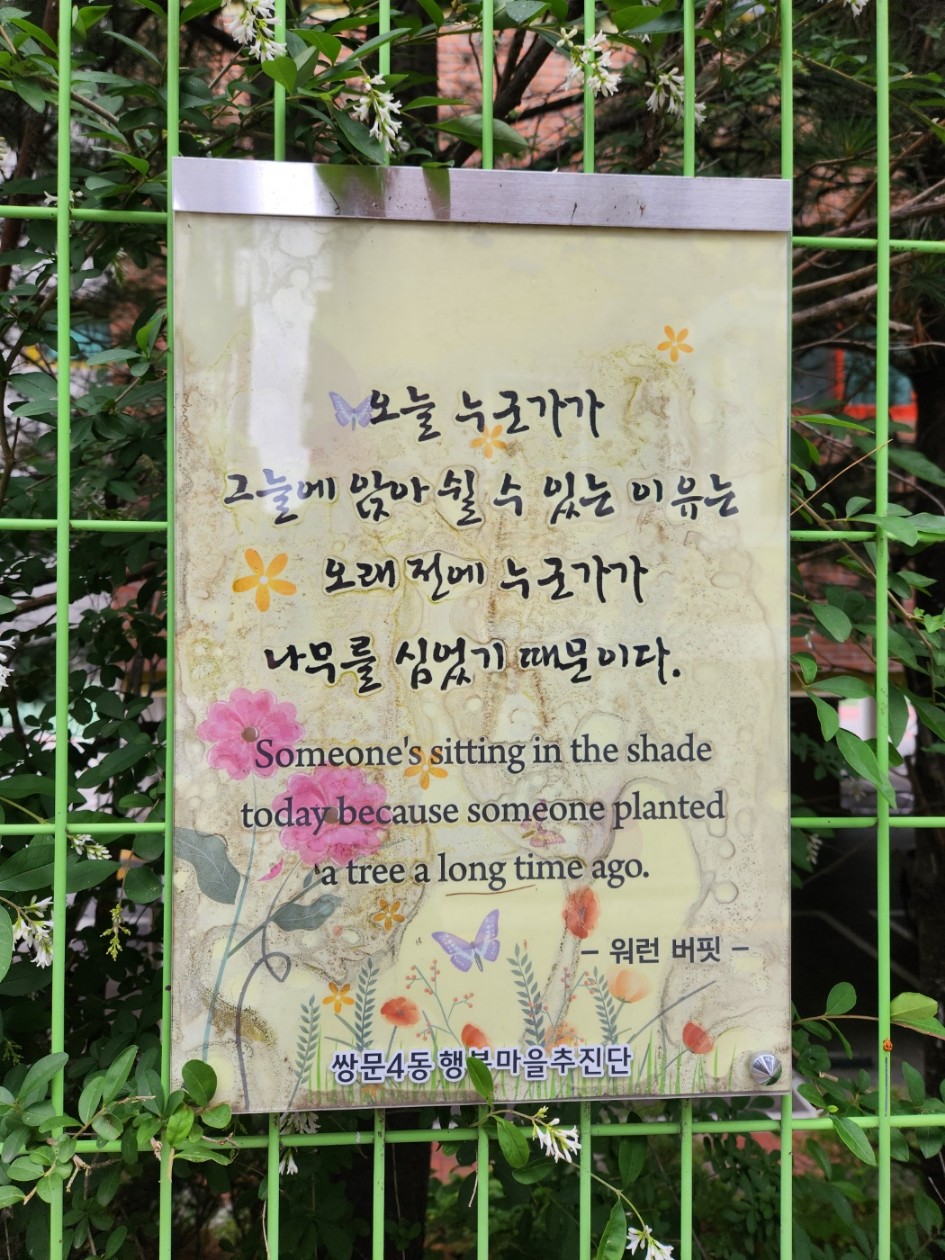 오늘 누군가가
그늘에 앉아 쉴 수 있는 이유는
오래 전에 누군가가
나무를 심었기 때문이다.
Someone's sitting in the shade
today because someone planted
a tree a long time ago.
– 워런 버핏 –
쌍문4동 행복마을추진단